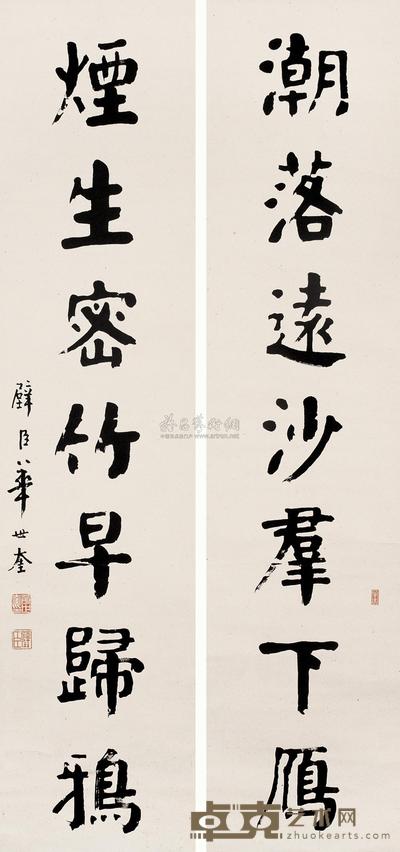 潮落遠沙羣下鴈
煙生密竹早歸鴉
璧臣華世奎
卓克艺术网
zhuokearts.com